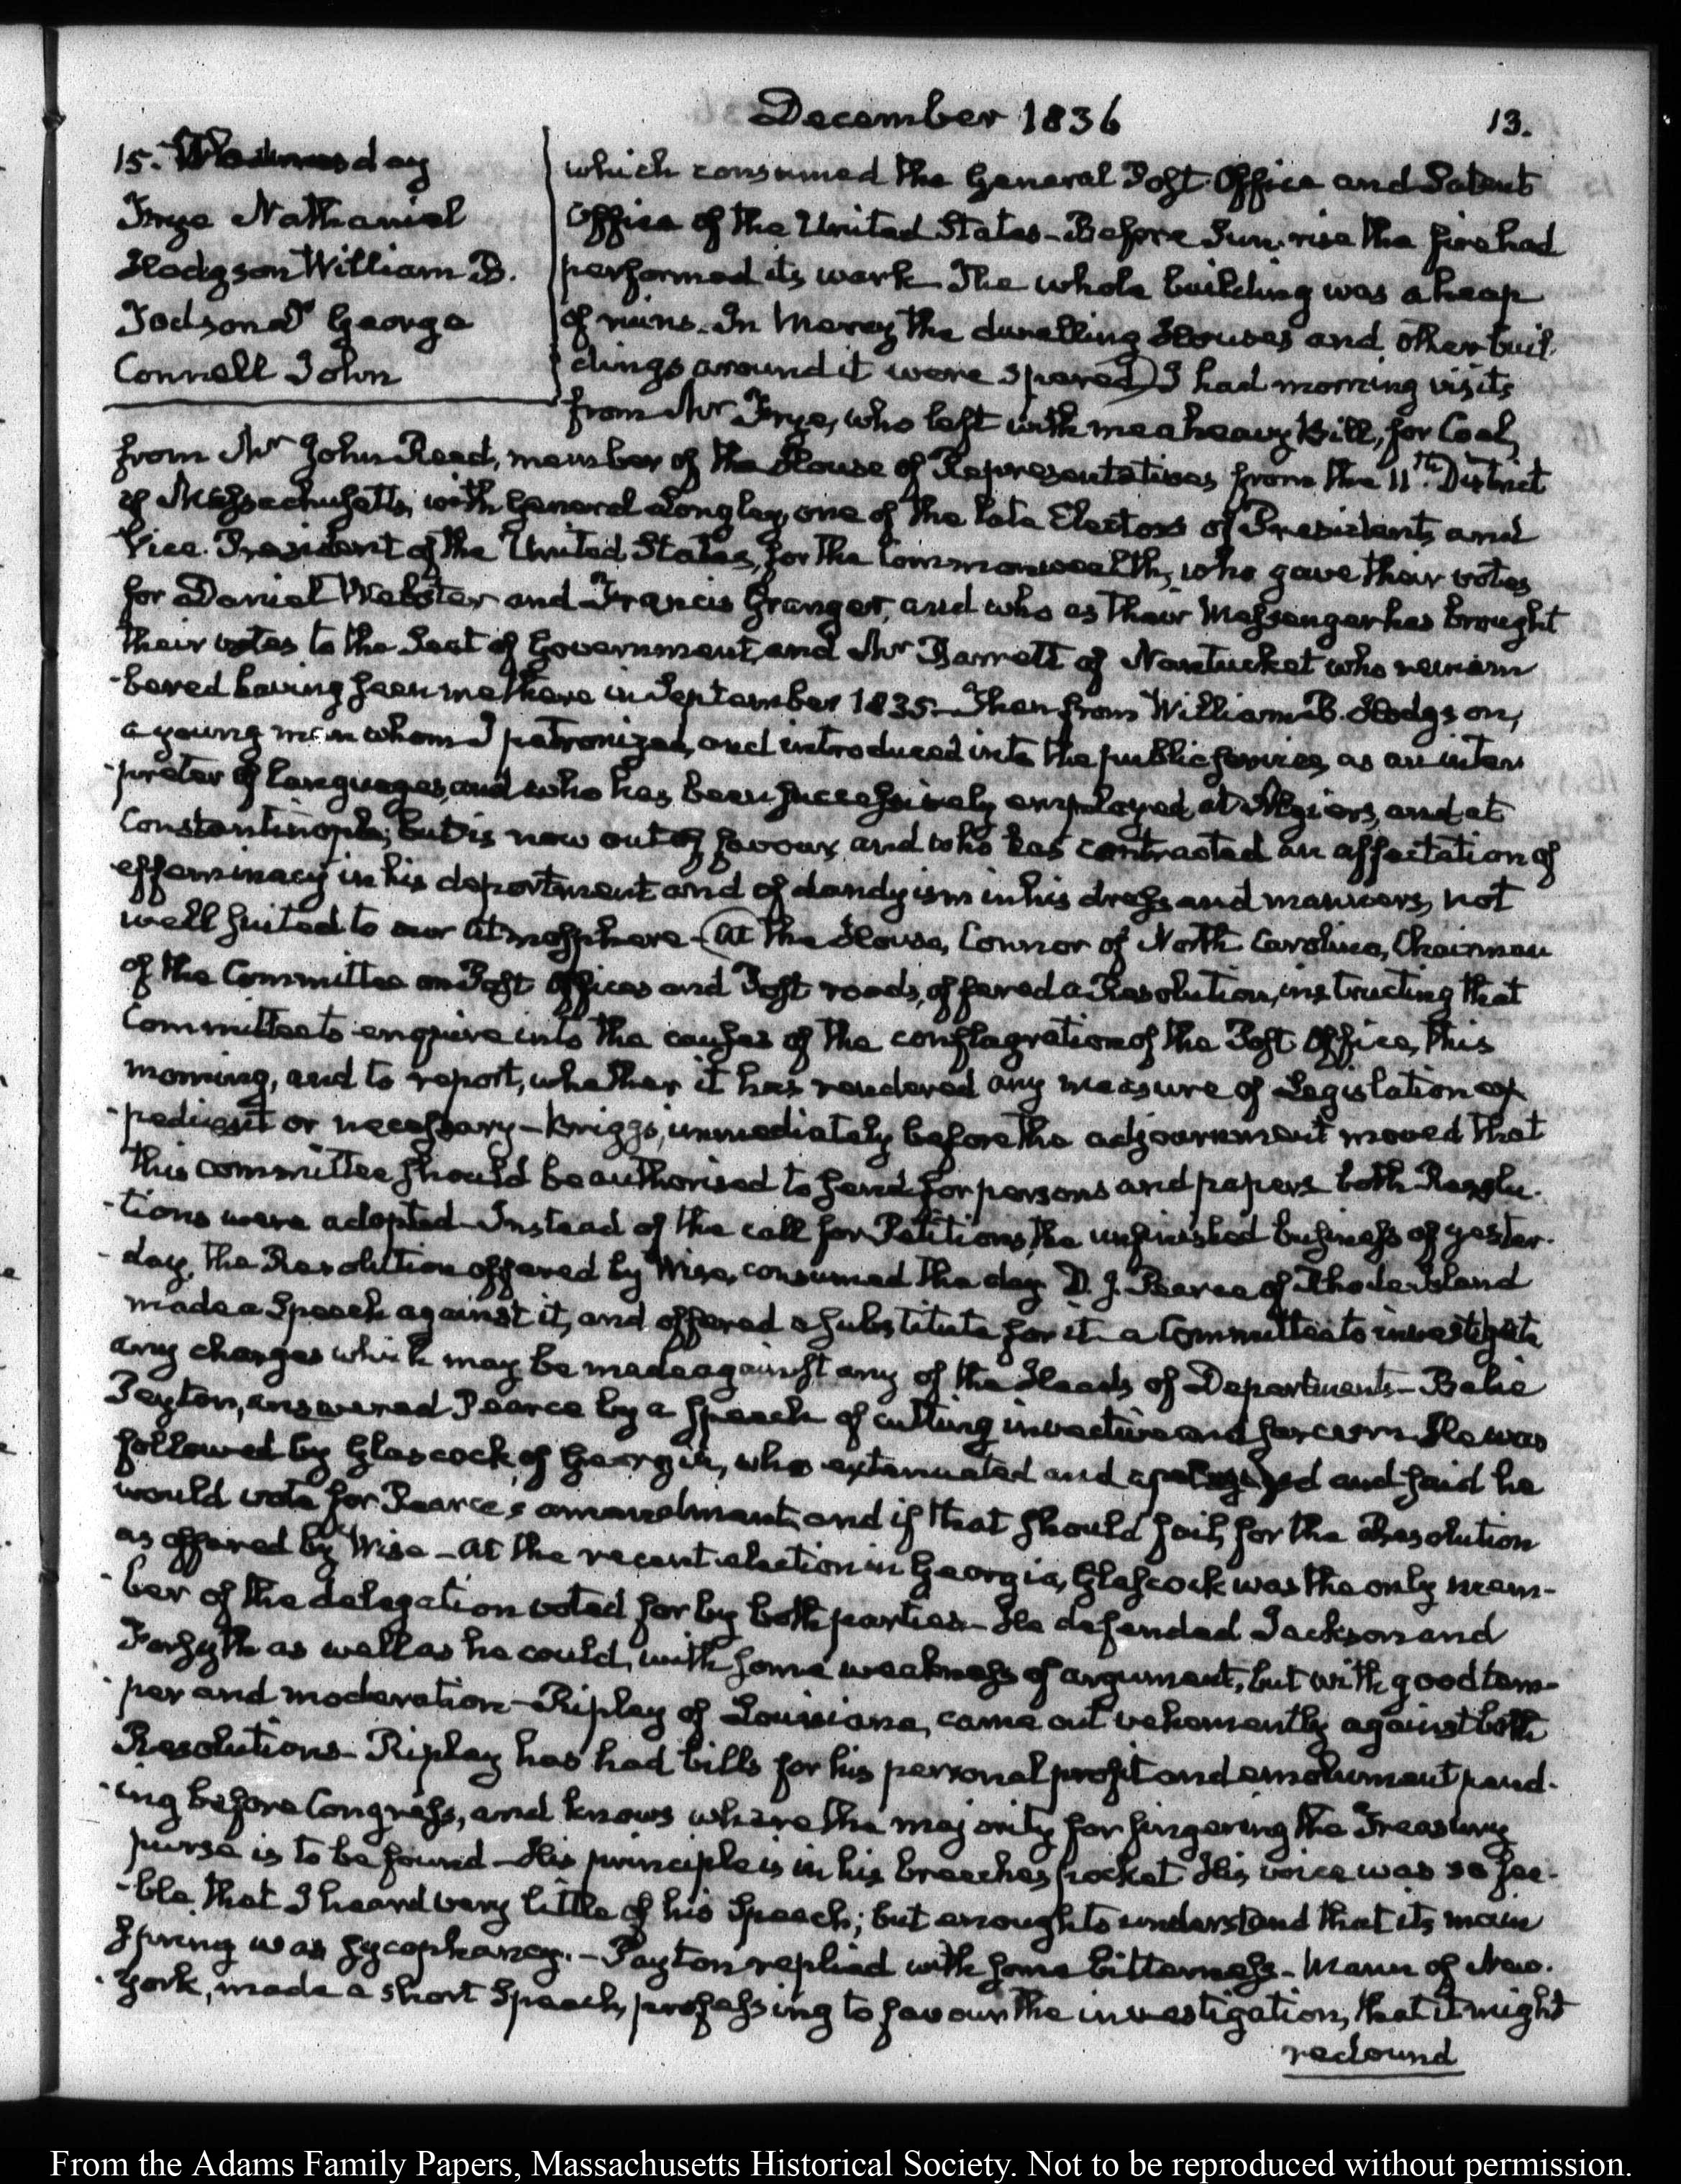 December 1836
13.
15. Wednesday
Frye Nathaniel
Hodgson William B.
George
Connell John
which consumed the General Post Office and Patent
Office of the United States – Before Sun-rise the fire had
performed its work. The whole building was a heap
of ruins. In Mercy the dwelling Houses and other buil-
dings around it were spared) I had morning visits
from Mr Frye, who left with me a heavy Bill, for Coal,
from Mr John Reed, member of the House of Representatives from the 11th District
of Massachusetts, with General Longley, one of the late Electors of President, and
Vice-President of the United States, for the Commonwealth, who gave their votes
for Daniel Webster and Francis Granger, and who as their Messenger has brought
their votes to the Seat of Government, and Mr Barrett of Nantucket who remem
-bered having seen me there in September 1835 – Then from William B. Hodgson,
a young man whom I patronized, and introduced into the public service, as an inter
-preter of languages, and who has been successively employed at Algiers, and at
Constantinople; but is now out of favour, and who has contracted an affectation of
effeminacy in his deportment and of dandyism in his dress and manners, not
well suited to our atmosphere – (At the House, Connor of North Carolina, Chairman
of the Committee on Post Offices and Post roads, offered a Resolution, instructing that
Committee to enquire into the causes of the conflagration of the Post-Office, this
morning, and to report, whether it has rendered any measure of Legislation ex
-pedient or necessary – Briggs, immediately before the adjournment moved that
this committee should be authorised to send for persons and papers both Resolu-
-tions were adopted – Instead of the call for Petitions, the unfinished business of yester-
-day, the Resolution offered by Wise, consumed the day. D. J. Pearce of Rhode-Island
made a Speech against it, and offered a substitute for it – a Committee to investigate
any charges which may be made against any of the Heads of Departments – Balie
Peyton, answered Pearce by a speech of cutting invective and sarcasm. He was
followed by Glascock, of Georgia, who extenuated and apologized and said he
would vote for Pearce's amendment, and if that should fail, for the Resolution
as offered by Wise – At the recent election in Georgia, Glascock was the only mem-
-ber of the delegation voted for by both parties – He defended Jackson and
Forsyth as well as he could, with some weakness of argument, but with good tem-
-per and moderation – Ripley of Louisiana, came out vehemently against both
Resolutions – Ripley has had bills for his personal profit and emolument pend-
-ing before Congress, and knows where the majority for fingering the Treasury
purse is to be found – His principle is in his breeches pocket His voice was so fee-
-ble, that I heard very little of his Speech; but enough to understand that its main
Spring was sycophancy. – Peyton replied with some bitterness – Mann of New-
-York, made a short Speech, professing to favour the investigation, that it might
redound
From the Adams Family Papers, Massachusetts Historical Society. Not to be reproduced without permission.